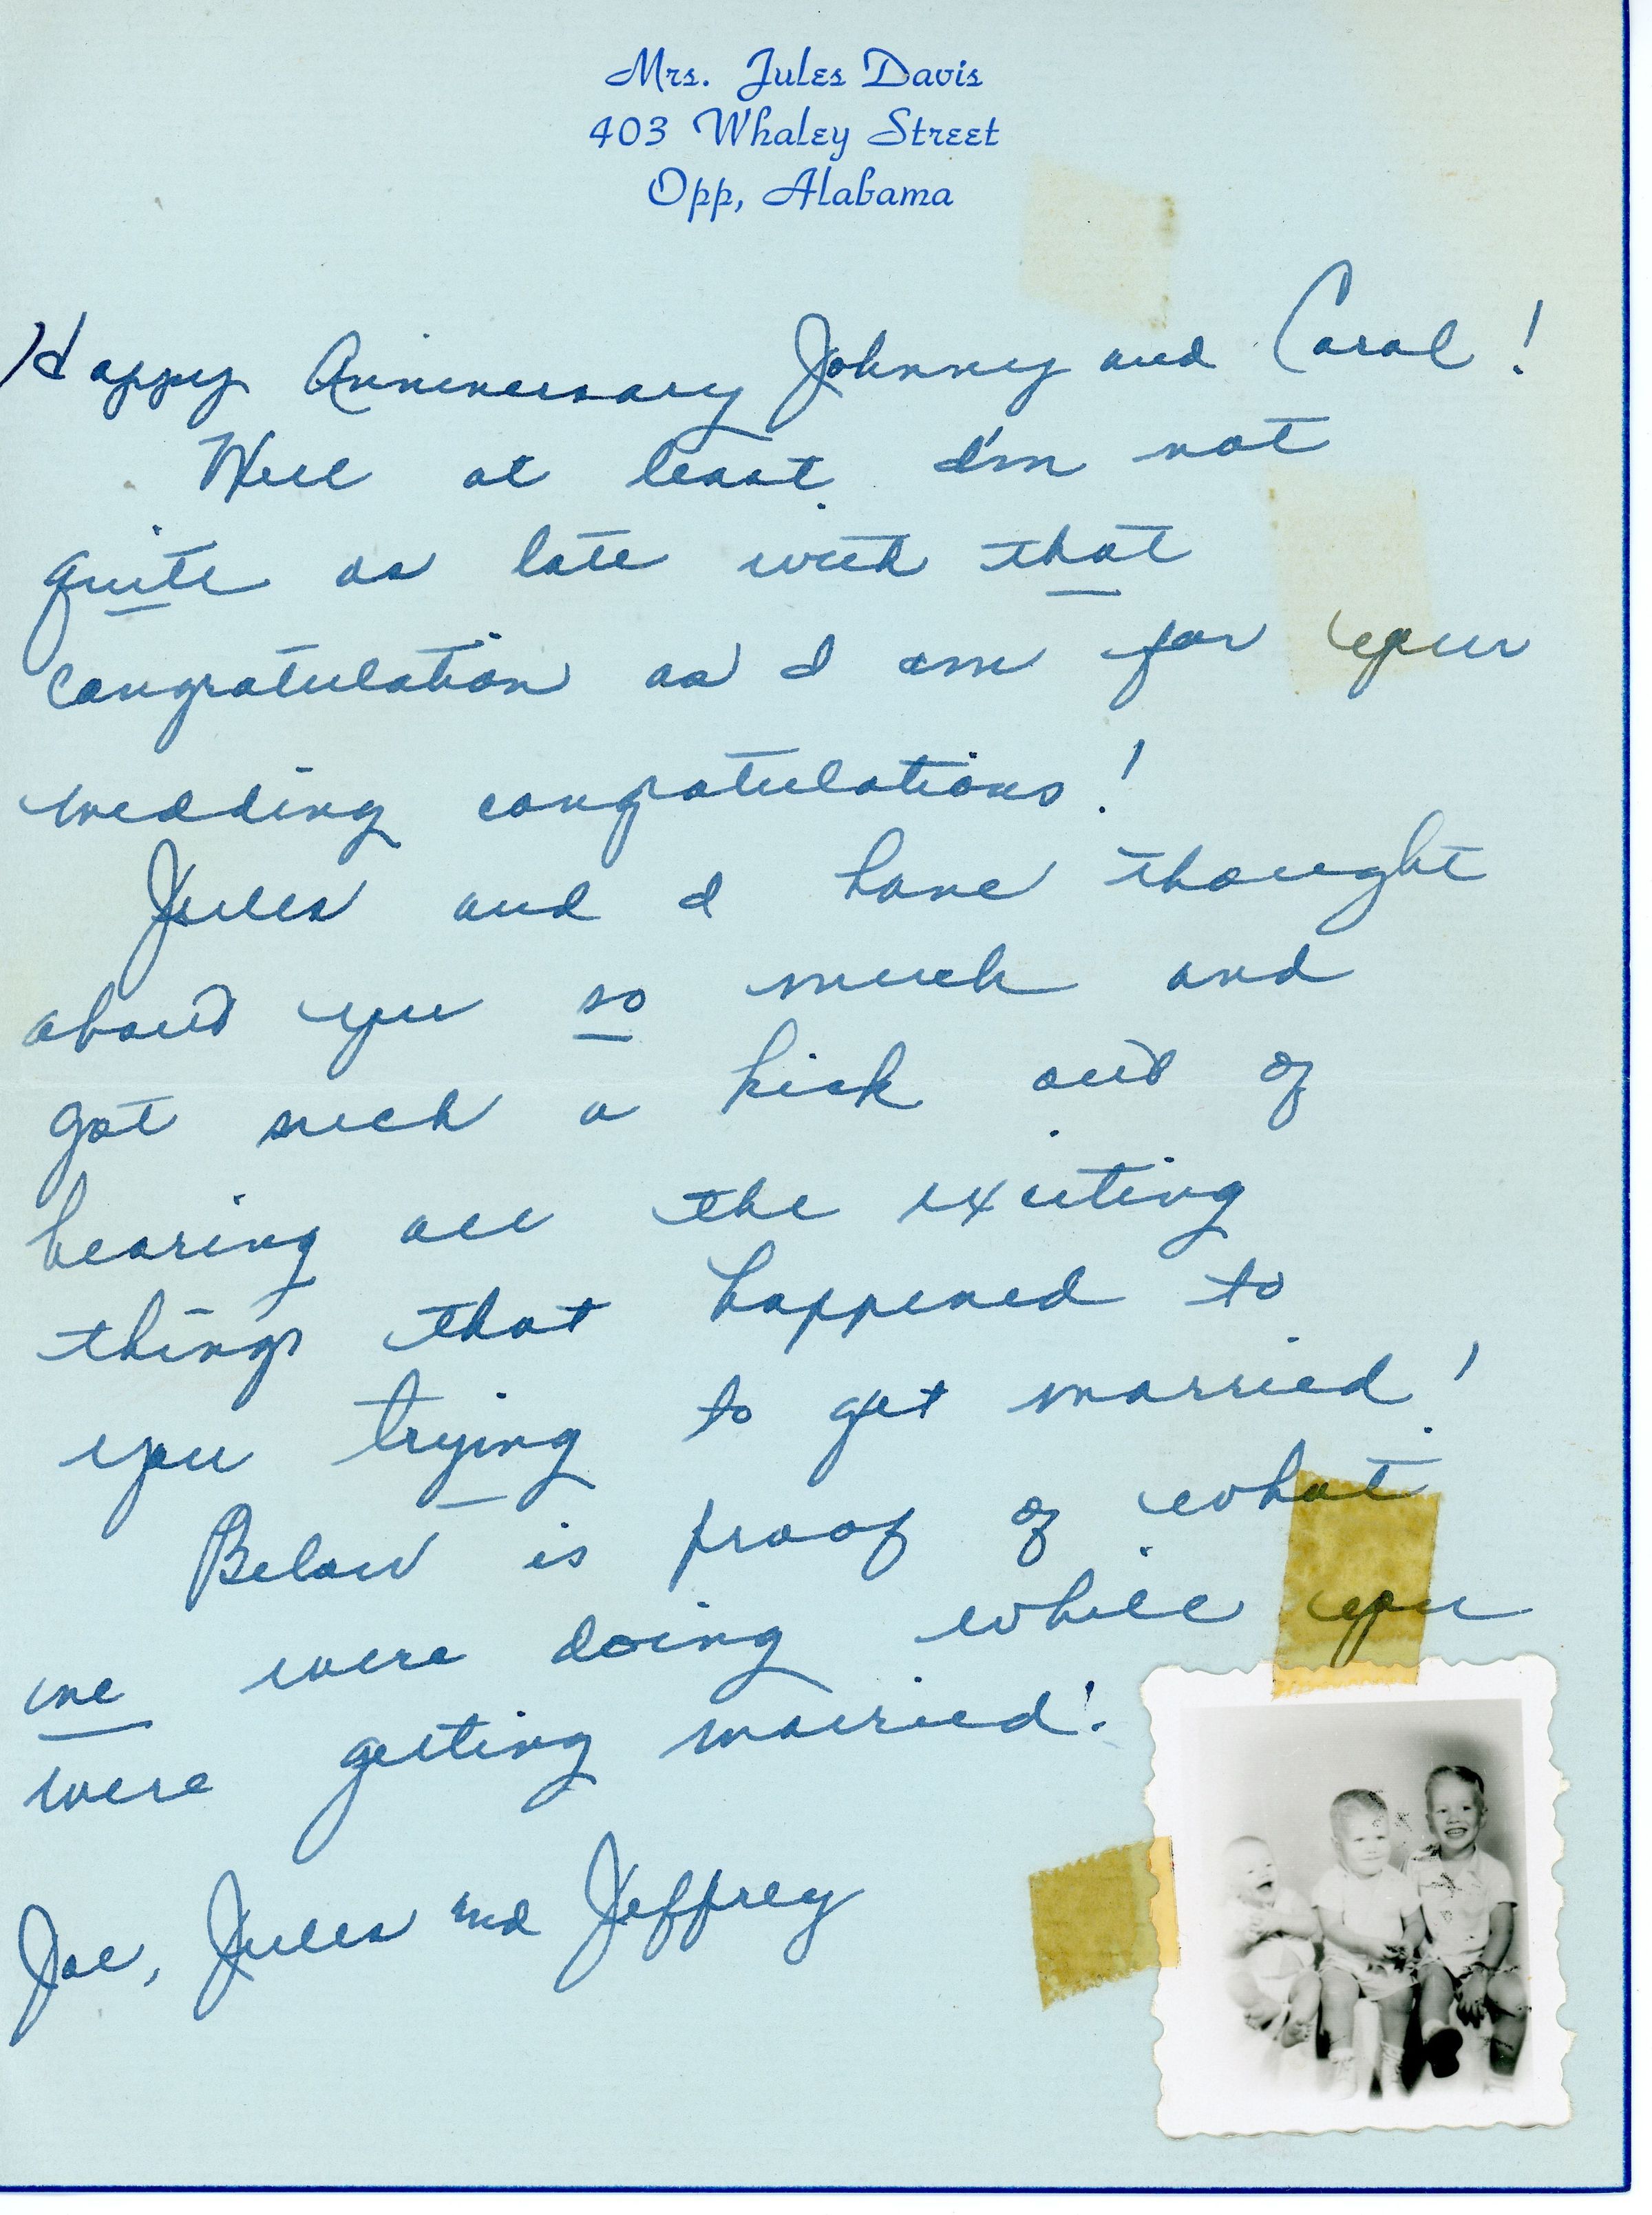 Mrs. Jules Davis
403 Whaley Street
Opp, Alabama
Happy Anniversary Johnny and Carol!
Well at least I'm not
quite as late with that
congratulation as I am for your
wedding congratulations!
Jules and I have thought
about you so much and
got such a kick out of
hearing all the exciting
things that happened to
you trying to get married!
Below is proof of what
we were doing while you
were getting married!
Joe, Jules and Jeffrey